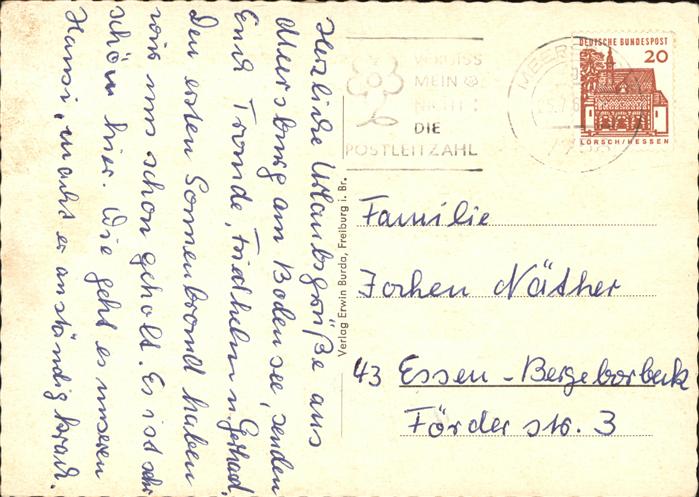 Herzliche Urlaubsgrüße aus
Meersburg am Bodensee, senden
Euch Tronde, Friedhelm u. Gerhard.
Den ersten Sonnenbrand haben
wir uns schon geholt. Es ist sehr
schön hier. Wie geht es unseren
Hansi, macht er anständig krach.
Verlag Erwin Burda, Freiburg i. Br.
VERGISS
MEIN
NICHT:
DIE
POSTLEITZAHL
MEERS
DEUTSCHE BUNDESPOST
20
LORSCH/HESSEN
Familie
Jochen Näther
43 Essen-Bergeborbeck
Förder str. 3